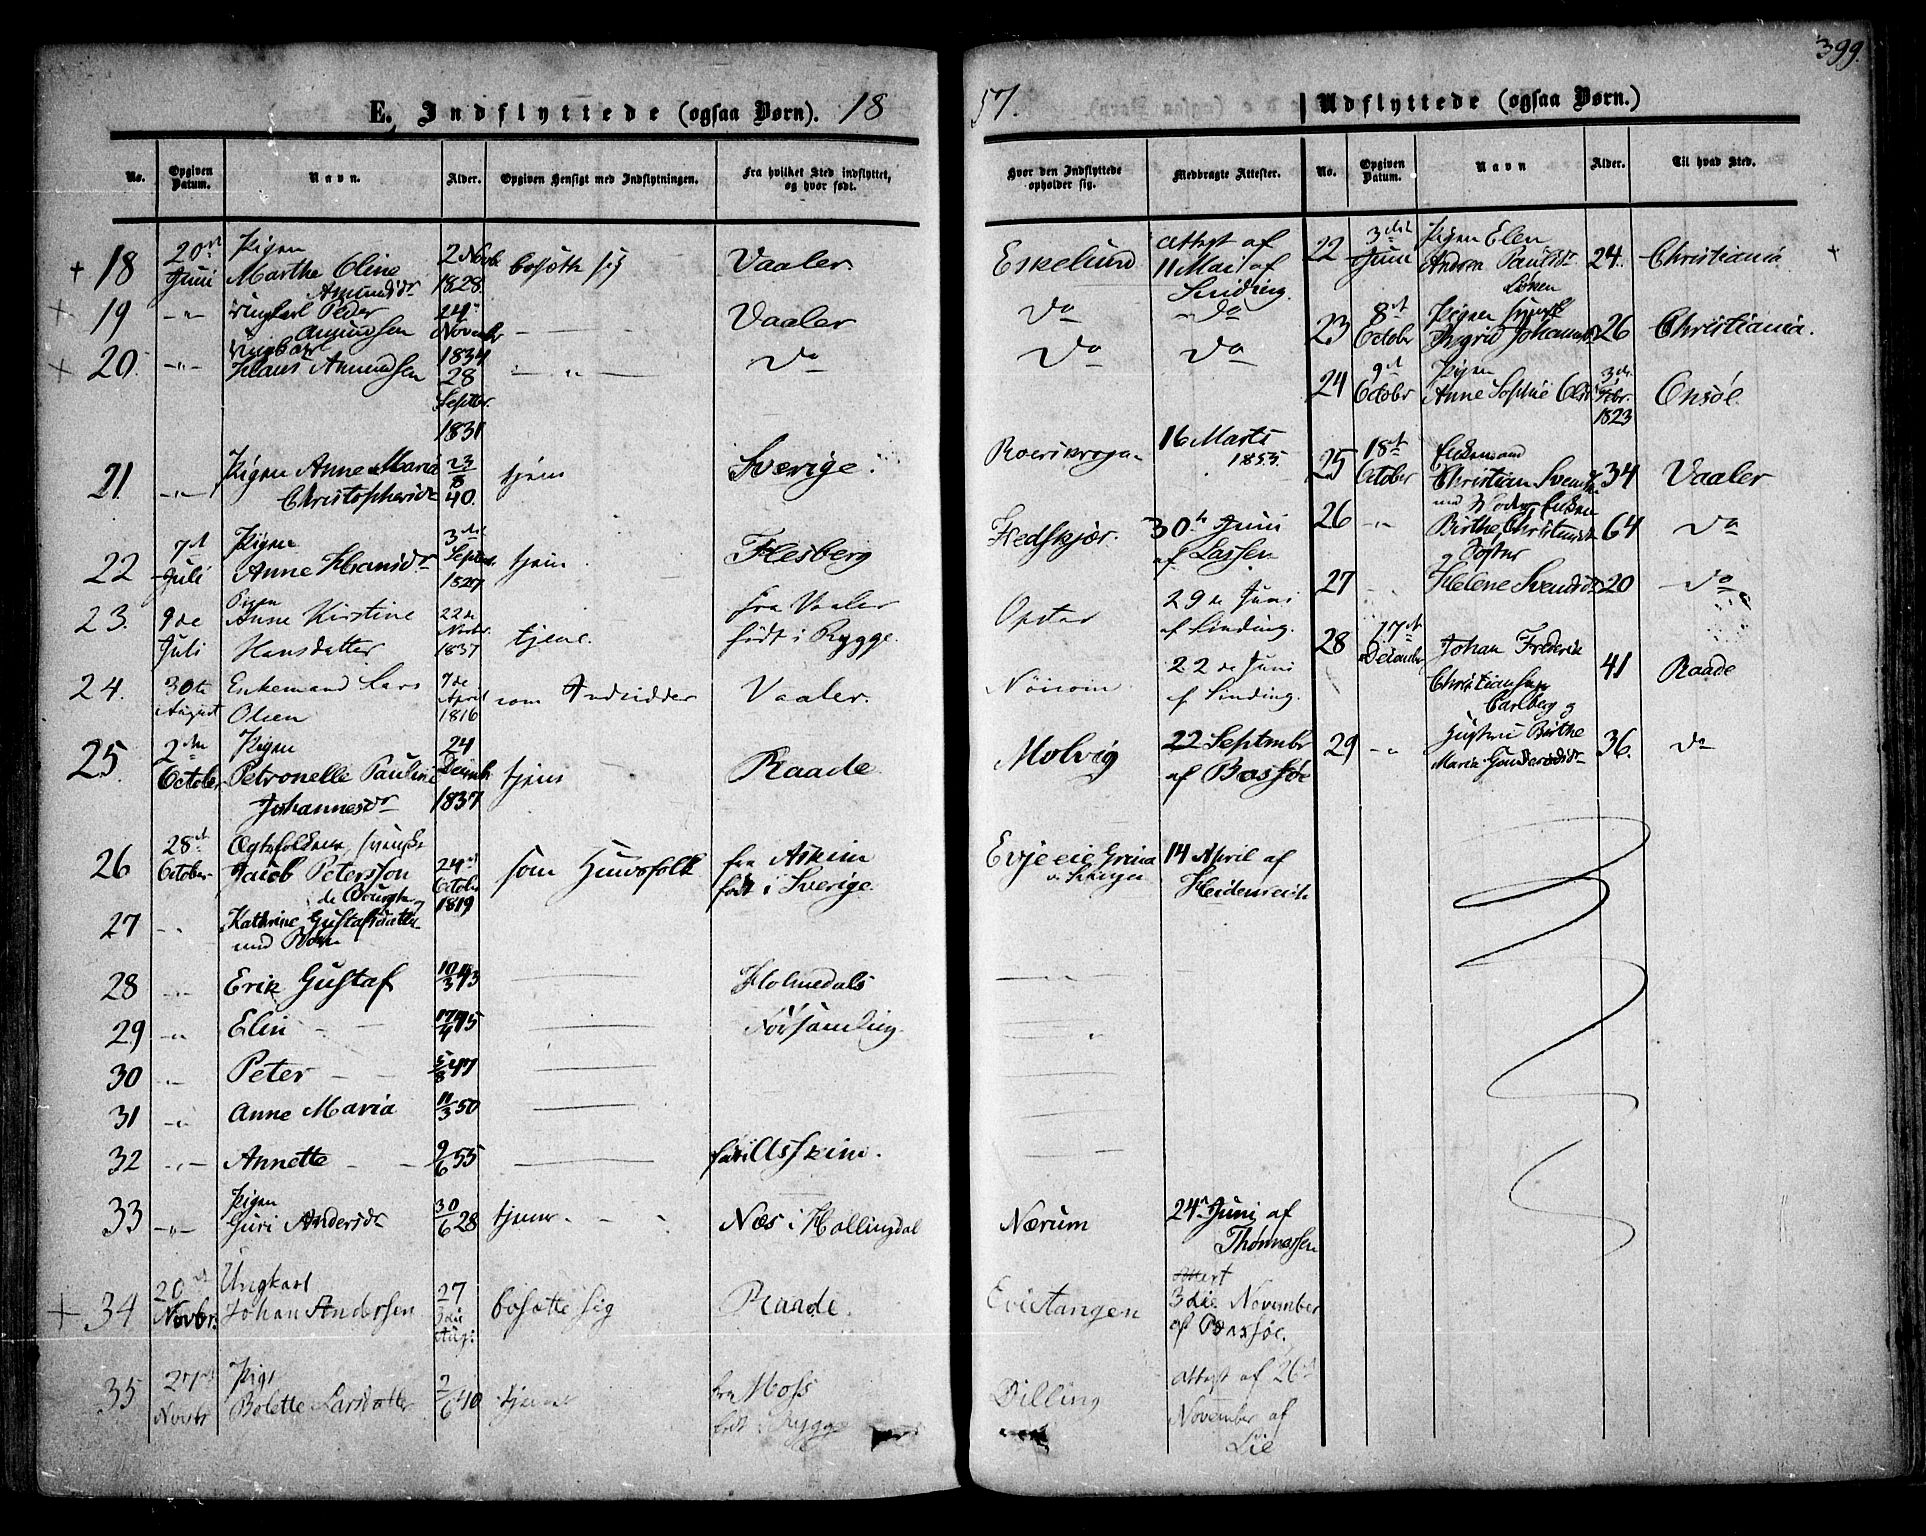 399.
E. Indflyttede (ogsaa Børn). 18
57. Udflyttede (ogsaa Børn.)
No. Opgiven Datum. Navn. Alder. Opgiven Hensigt med Indflytningen. Fra hvilket Sted indflyttet, og hvor født.
Hvor den Indflyttede opholder sig. Medbragte Attester. No. Opgiven Datum. Navn Alder. Til hvad Sted.
+ 18 20 Juni Pigen Marthe Oline Amundsdr 2 Novb. 1828. bosætte sig Vaaler. Eskelund Attest af 11 Mai af Sinding.
+ 19 -"- Ungkarl Peder Amundsen 24 Novembr 1834 Vaaler do do
+ 20. -"- Ungkarl Amundsen 28 Septbr. 1831 -"- do do do
21 -"- Pigen Anne Maria Christophersdr 23/8 40. tjene Sverige. 16 Marts 1855.
22 7 Juli Pigen Anne 3die Septbr. tjene Flesberg 30 Juni af Lassen
23. 9de Juli Pigen Anne Kirstine Hansdatter 22de Novbr. 1837 tjene. fra Vaaler født i Rygge. 29de Juni af Sinding.
24. 30te August Enkemand Lars Olsen 7de April 1816 som Indsidder Vaaler. 22de Juni af Sinding.
25. 2den October Pigen Petronelle Pauline Johannesdr 24 Decmb. 1837 tjene Raade. Molvig 22 Septmbr af Bassøe
26 28 October Ægtefolkene svenske Jacob Petersson de Bourgh og 24 October 1819 som Huusfolk fra Askim født i Sverige. Evje eie 14 April af Heidenreich
27 -"- Kathrine Gustafsdatter med Børn
28 -"- Erik Gustaf 10/3 43 Holmedals
29 -"- Elin 17/4 45 Forsamling.
30 -"- Peter 5/8 47
31 -"- Anne Maria 11/3 50
32 -"- Annette 9/6 55 født i Askim.
33 -"- Pigen Guri Andersdr 30/6 28 tjene Næs i Hallingdal Nærum 24 Juni af Thomassen
+ 34 20 Novbr. Ungkarl Johan Andersen 27 3die Aug. bosætte sig Raade. Evietangen Attest 3die November af Bassøe.
35 27 Novbr Pige Bolette Larsdatter 2/6 40 tjene fra Moss født i Rygge Dilling Attest af 26 November af Lie
22 3die Juni Pigen Elen Andrea Paulsdr 24. Christiania. +
23 8 October Pigen Ingrid Johannesdr 26 Christiania.
24 9 October Pigen Anne Sophie Olsdr 3die Febr. 1823 Onsøe.
25 18 October Enkemand Christian Svendsen 34 Vaaler
26 -"- med Moder Enken Birthe Christiansdr 64 do
27 -"- og Søster Helene Svendsdr 20 do
28 17 December Johan Frederik Christiansen Carlberg og 41 Raade
29 -"- Hustru Birthe Marie Gundersdr 36. do